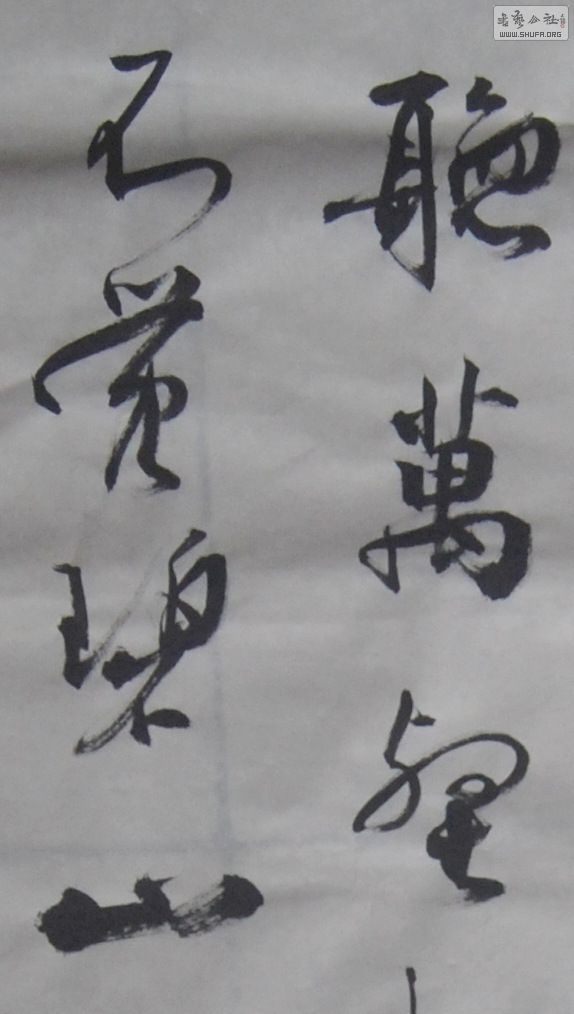 聽萬壑
不覺碧山
書藝公社
WWW.SHUFA.ORG